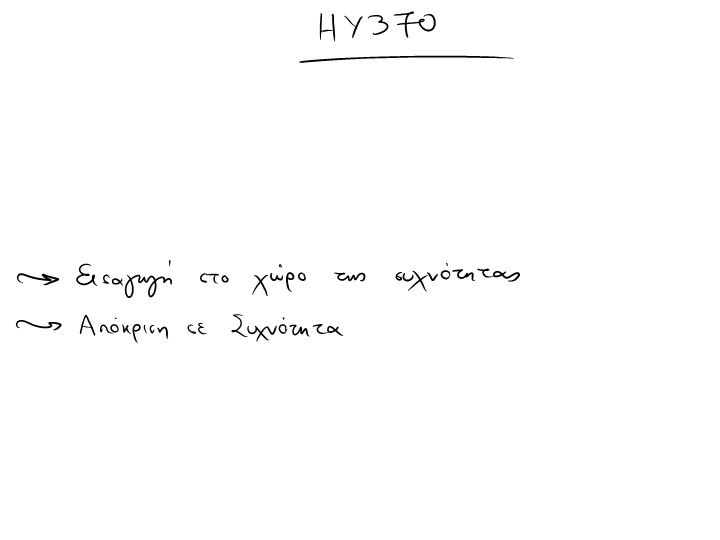 ΗΥ370
Εισαγωγή στο χώρο της συχνότητας
Απόκριση σε Συχνότητα